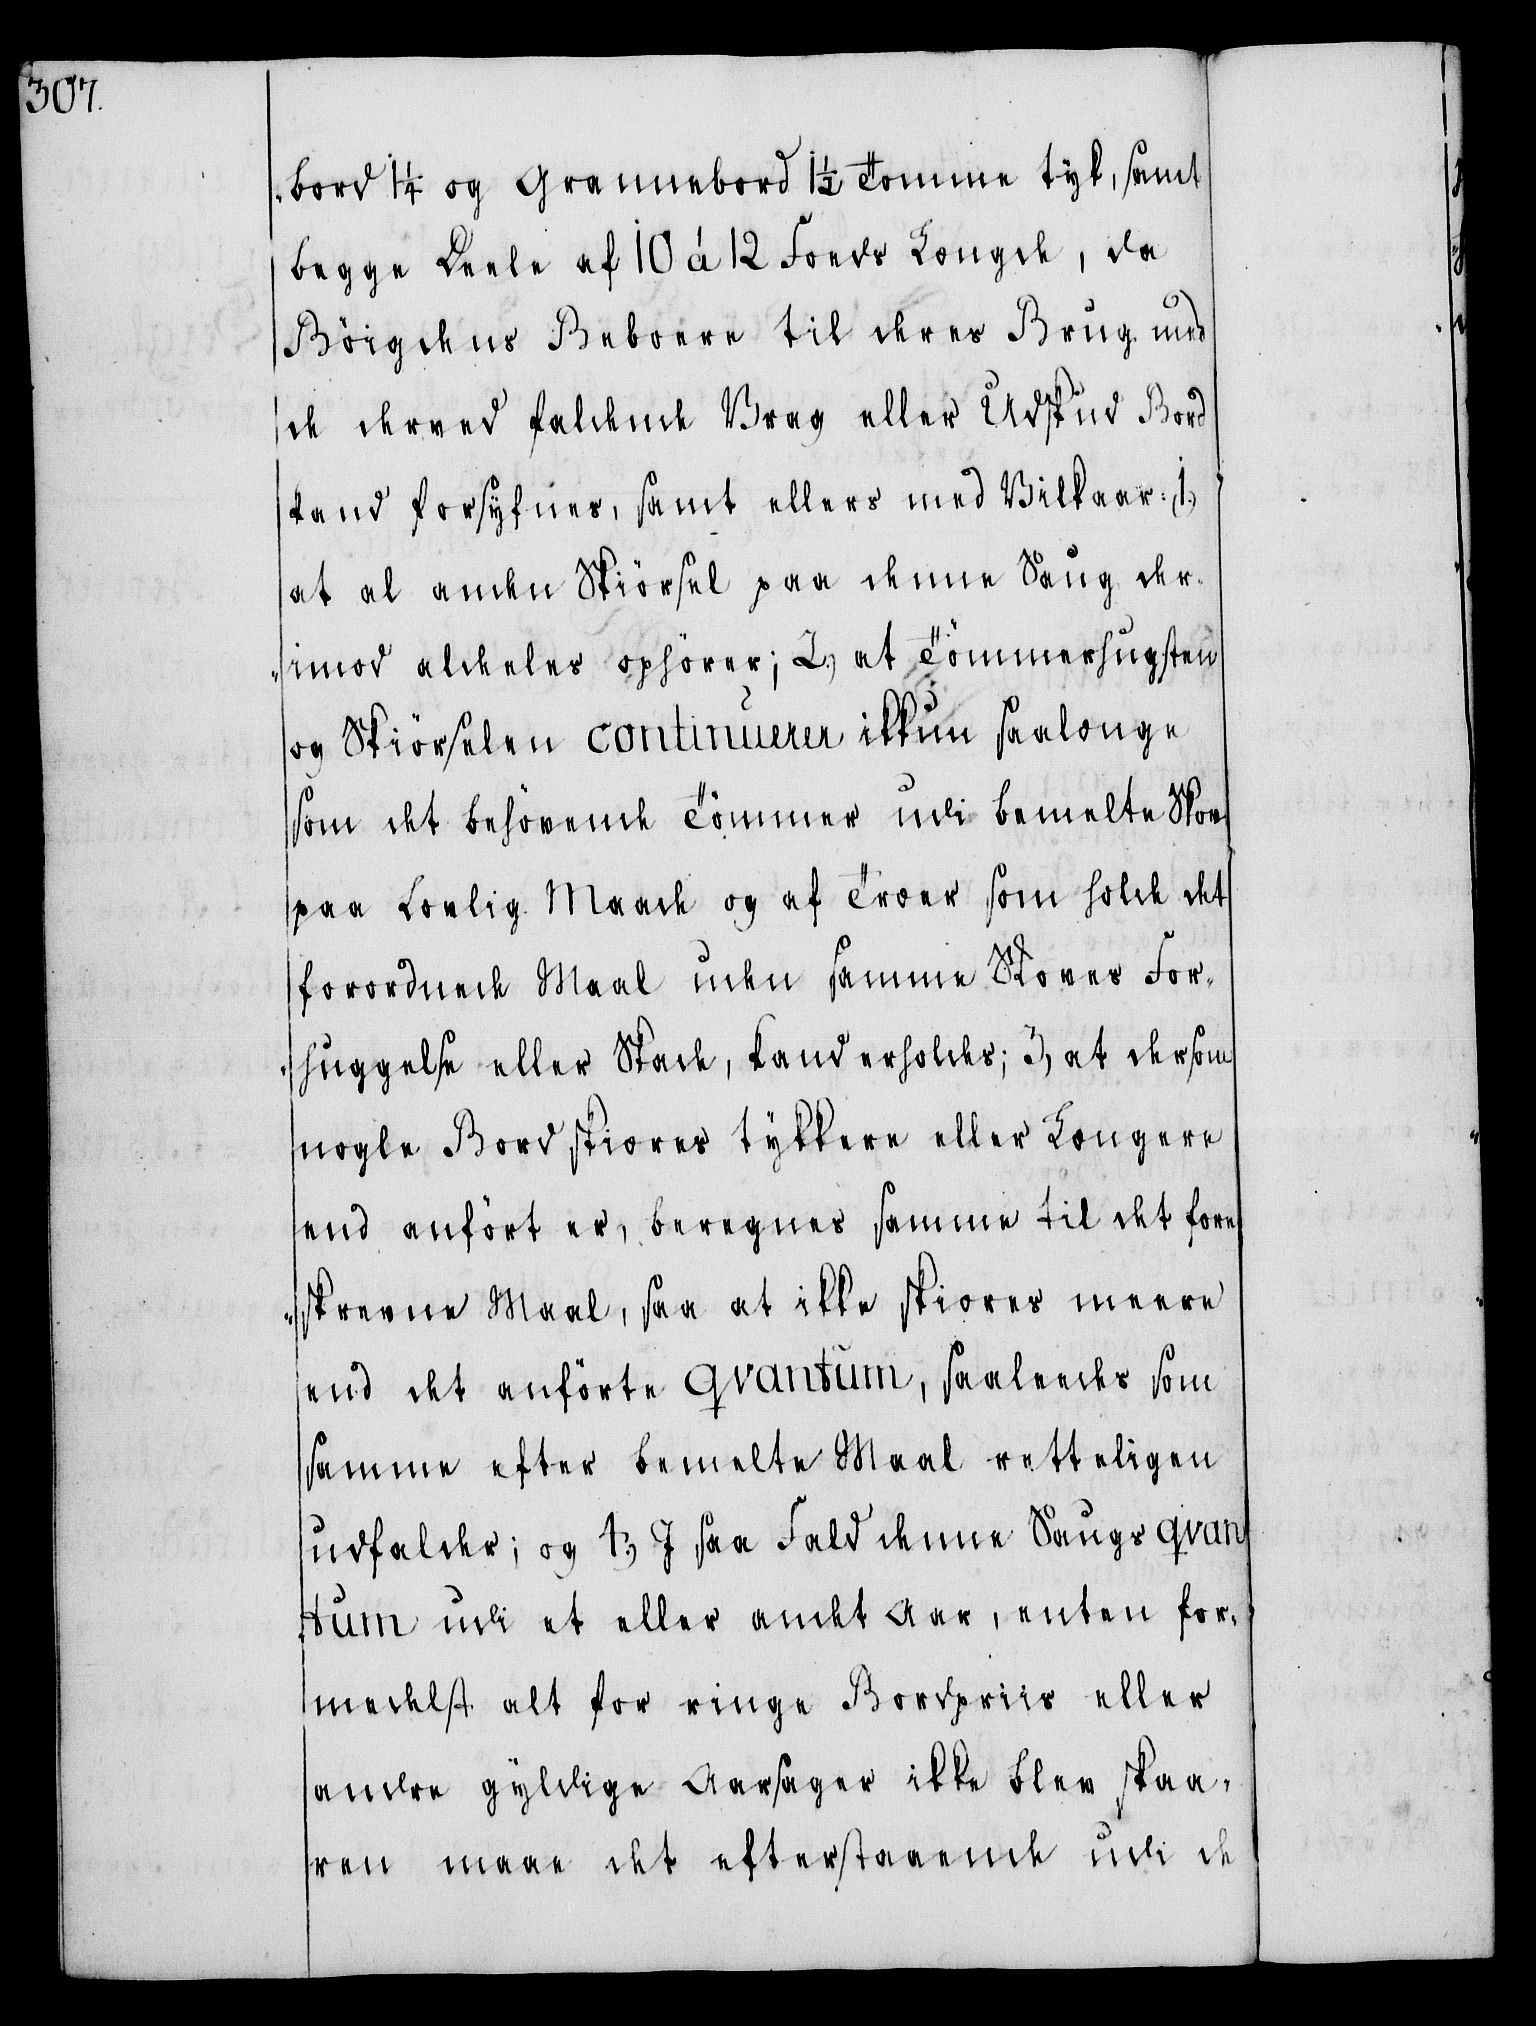 307.
bord 1¼ og Grannebord 1½ Tomme tyk, samt
begge Deele af 10 á 12 Foeds Længde, da
Böigdens Beboere til deres Brug med
de derved faldende Vrag eller Udskud Bord
kand forsyfnes, samt ellers med Vilkaar: 1,
at al anden Skiörsel paa denne Saug der-
imod aldeeles ophörer; 2, at Tömmerhugsten
og Skiörselen continuerer ikkun saalænge
som det behövende Tömmer udi bemelte Skov
paa Lovlig Maade og af Træer som holde det
forordnede Maal uden samme Skoves For-
huggelse eller Skade, kand erholdes; 3, at dersom
nogle Bord skiæres tykkere eller Længere
end anfört er, beregnes samme til det fore
skrevne Maal, saa at ikke skiæres meere
end det anförte qvantum, saaleedes som
samme efter bemelte Maal retteligen
udfalder; og 4, I saa Fald denne Saugs qvan
tum udi et eller andet Aar, enten for-
medelst alt for ringe Bordpriis eller
andre gyldige Aarsager ikke blev skaa-
ren maae det efterstaaende udi de